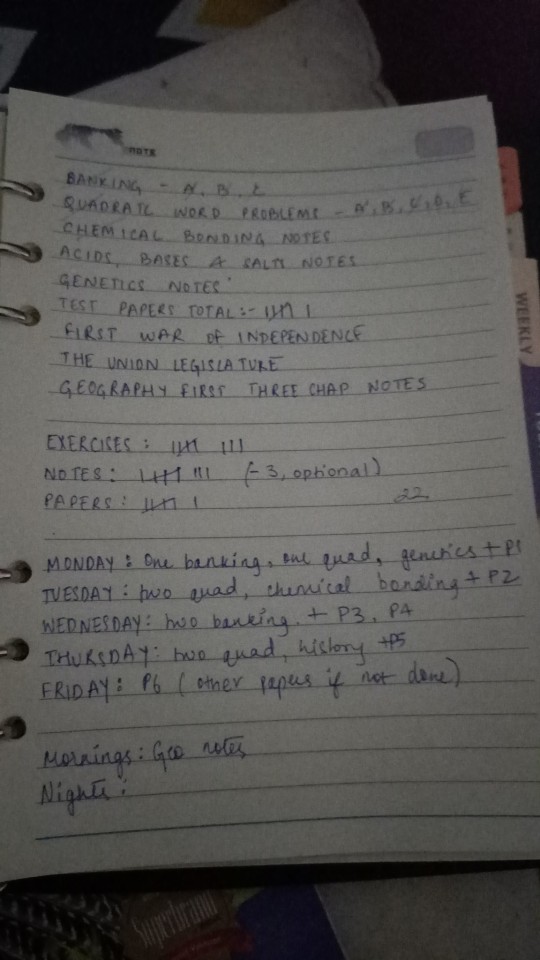 NOTE
BANKING - A, B, C
QUADRATC WORD PROBLEMS - A, B, C, D, E
CHEMICAL BONDING NOTES
ACIDS, BASES & SALTS NOTES
GENETICS NOTES
TEST PAPERS TOTAL :- 𝍸 I
FIRST WAR OF INDEPENDENCE
THE UNION LEGISLATURE
GEOGRAPHY FIRST THREE CHAP NOTES
EXERCISES : 𝍸 III
NOTES : 𝍸 III (-3, optional)
PAPERS : 𝍸 I 22
MONDAY : One banking, one quad, genetics + P1
TUESDAY : two quad, chemical bonding + P2
WEDNESDAY: two banking. + P3, P4
THURSDAY: two quad, history +P5
FRIDAY: P6 (other papers if not done)
Mornings: Geo notes
Nights :
WEEKLY
Superbrain